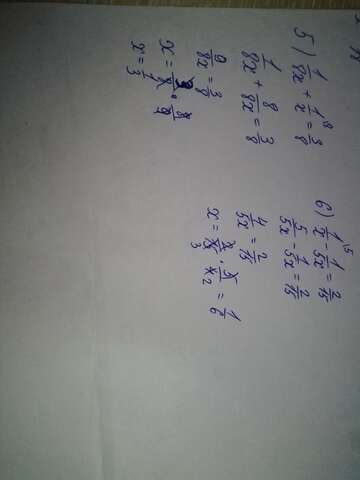 5) 1/8x + 1/x \8 = 3/8
1/8x + 8/8x = 3/8
9/8x = 3/8
x = 3/8 · 8/9
x = 1/3
6) 1/x \5 - 1/5x = 2/15
5/5x - 1/5x = 2/15
4/5x = 2/15
x = 2/15 · 5/4 = 1/6